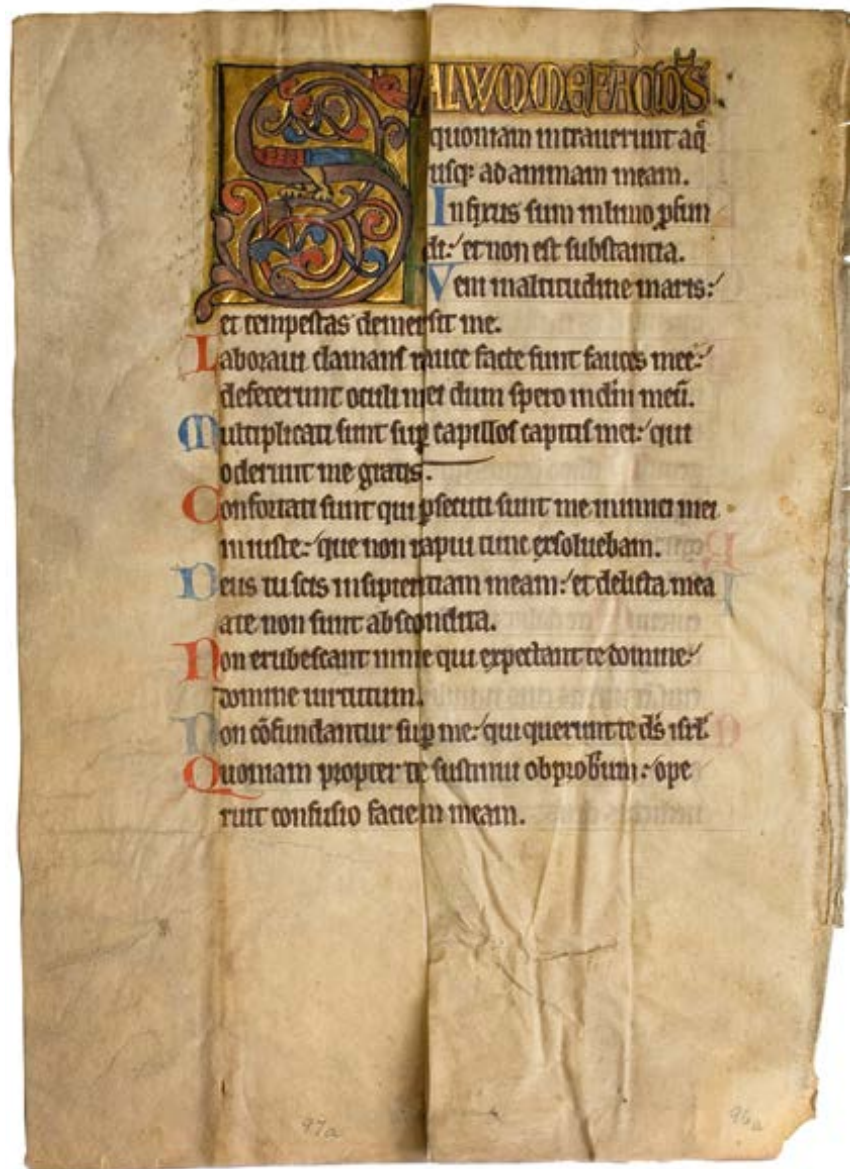 SALVVM ME FAC D̄S
quoniam intrauerunt aq̄
usq; ad animam meam.
Infixus sum inlimo ꝓfun
di: et non est substantia.
Veni inaltitudine maris:
et tempestas demersit me.
Laboraui clamans rauce facte sunt fauces mee:
defecerunt oculi mei dum spero indm̄ meū.
Multiplicati sunt sup̱ capillos capitis mei: qui
oderunt me gratis.
Confortati sunt qui ꝑsecuti sunt me inimici mei
iniuste: que non rapui tunc exsoluebam.
Deus tu scis insipientiam meam: et delicta mea
ate non sunt abscondita.
Non erubescant inme qui expectant te domine:
domine uirtutum.
Non cōfundantur sup̱ me: qui querunt te ds̄ isrl̄.
Quoniam propter te sustinui obprobrium: ope
ruit confusio faciem meam.
97a
96a